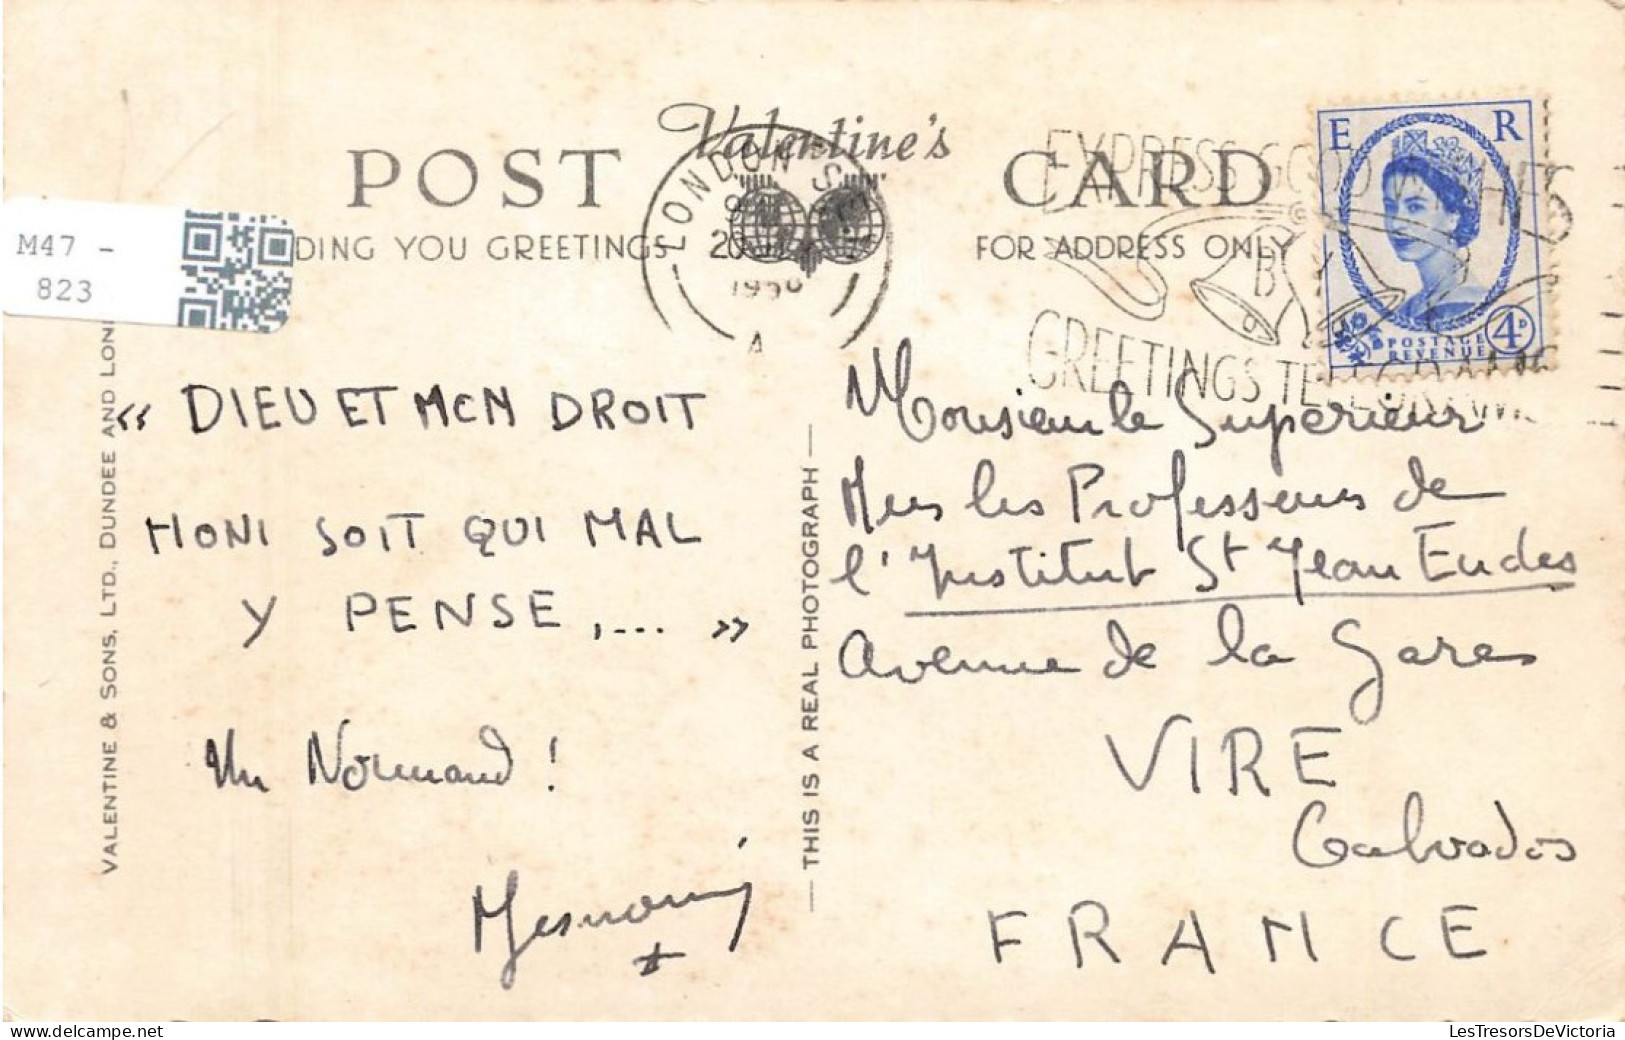 Valentine's
POST CARD
DING YOU GREETINGS
FOR ADDRESS ONLY
M47 -
823
LONDON S.
1958
A
EXPRESS GOOD WISHES
BY
GREETINGS TELEGRAMS
E R
POSTAGE
REVENUE
4D
VALENTINE & SONS, LTD., DUNDEE AND LON
« DIEU ET MON DROIT
HONI SOIT QUI MAL
Y PENSE, ... »
Un Normand !
— THIS IS A REAL PHOTOGRAPH —
Monsieur le Supérieur
Mrs les Professeurs de
l'Institut St Jean Eudes
Avenue de la Gare
VIRE
Calvados
FRANCE
LesTresorsDeVictoria